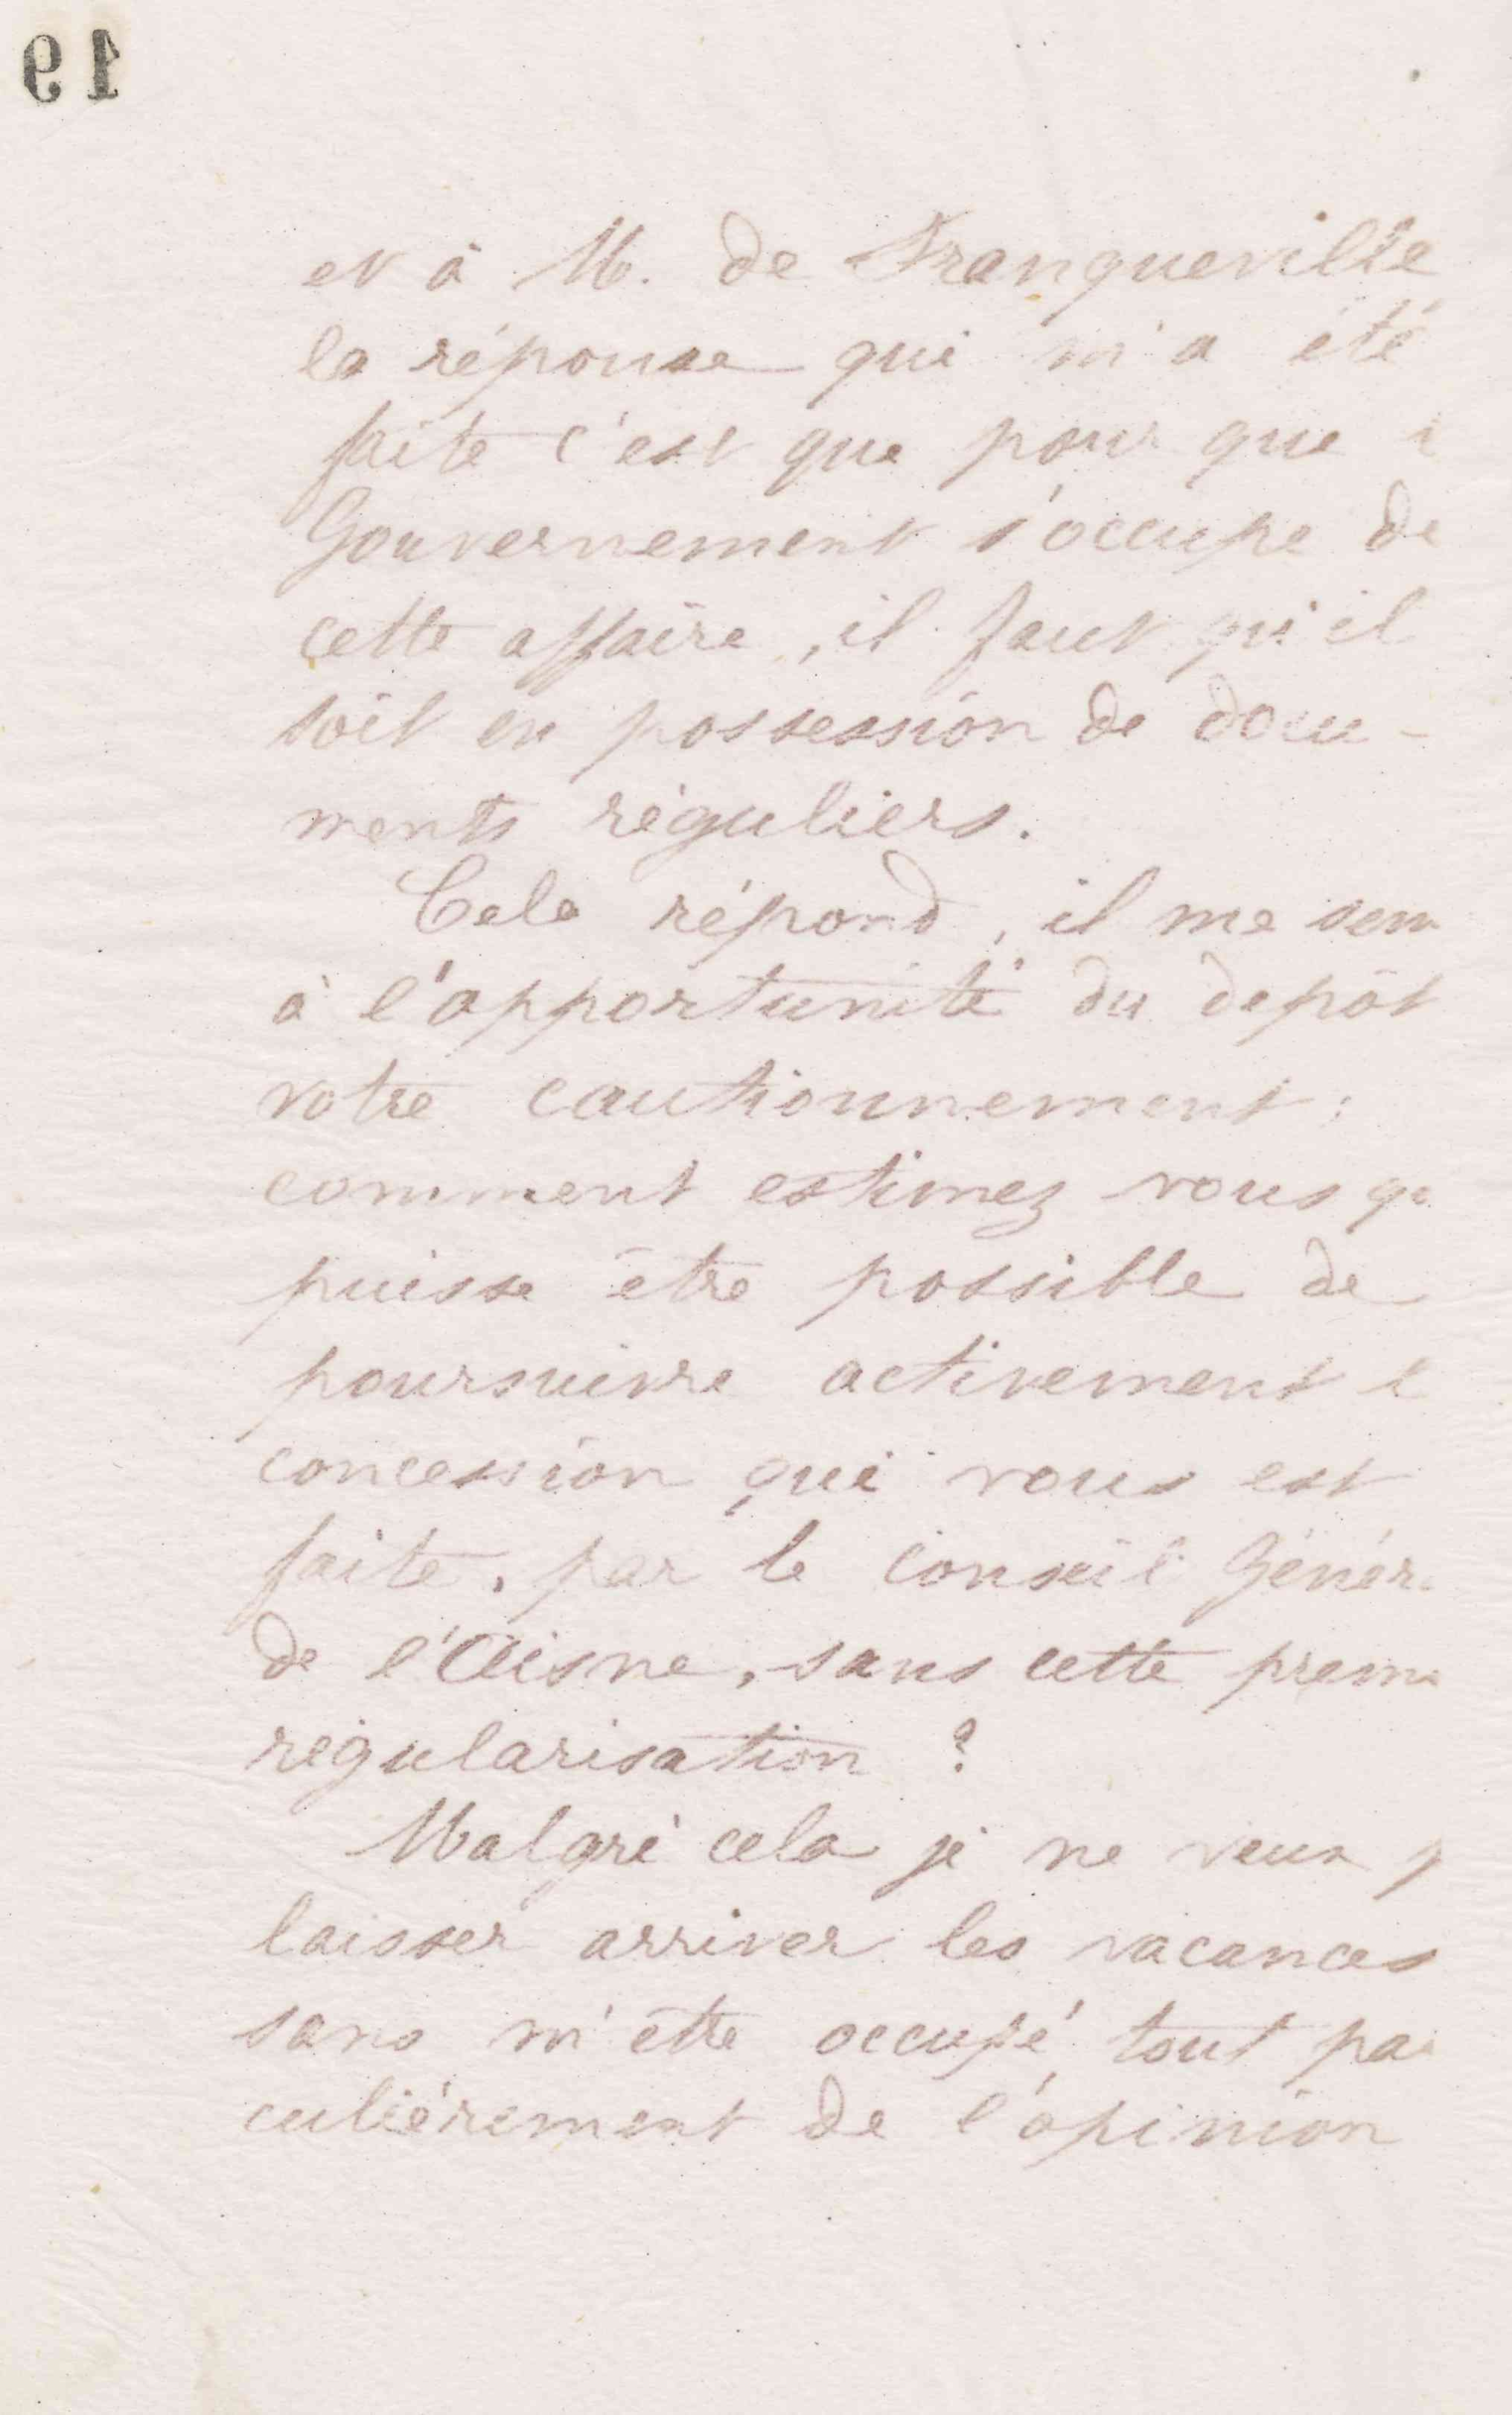 19
et à M. de Franqueville
la réponse qui m'a été
faite c'est que pour que
Gouvernement s'occupe de
cette affaire, il faut qu'il
soit en possession de docu-
ments réguliers.
Cela répond, il me sem
à l'opportunité du dépôt
votre cautionnement:
comment estimez vous qu
puisse être possible de
poursuivre activement l
concession qui vous est
faite, par le conseil Génér
de l'Aisne, sans cette prem
régularisation ?
Malgré cela je ne veux p
laisser arriver les vacances
sans m'être occupé tout pa
culièrement de l'opinion